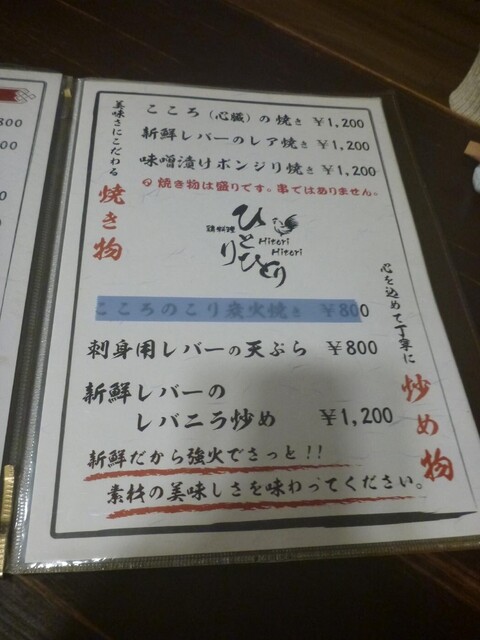 美味さにこだわる
焼き物
こころ(心臓)の焼き ¥1,200
新鮮レバーのレア焼き ¥1,200
味噌漬けボンジリ焼き ¥1,200
焼き物は盛りです。串ではありません。
鶏料理
ひとりひとり
Hitori
Hitori
こころのこり炭火焼き ¥800
心を込めて丁寧に
炒め物
刺身用レバーの天ぷら ¥800
新鮮レバーの
レバニラ炒め ¥1,200
新鮮だから強火でさっと!!
素材の美味しさを味わってください。
800